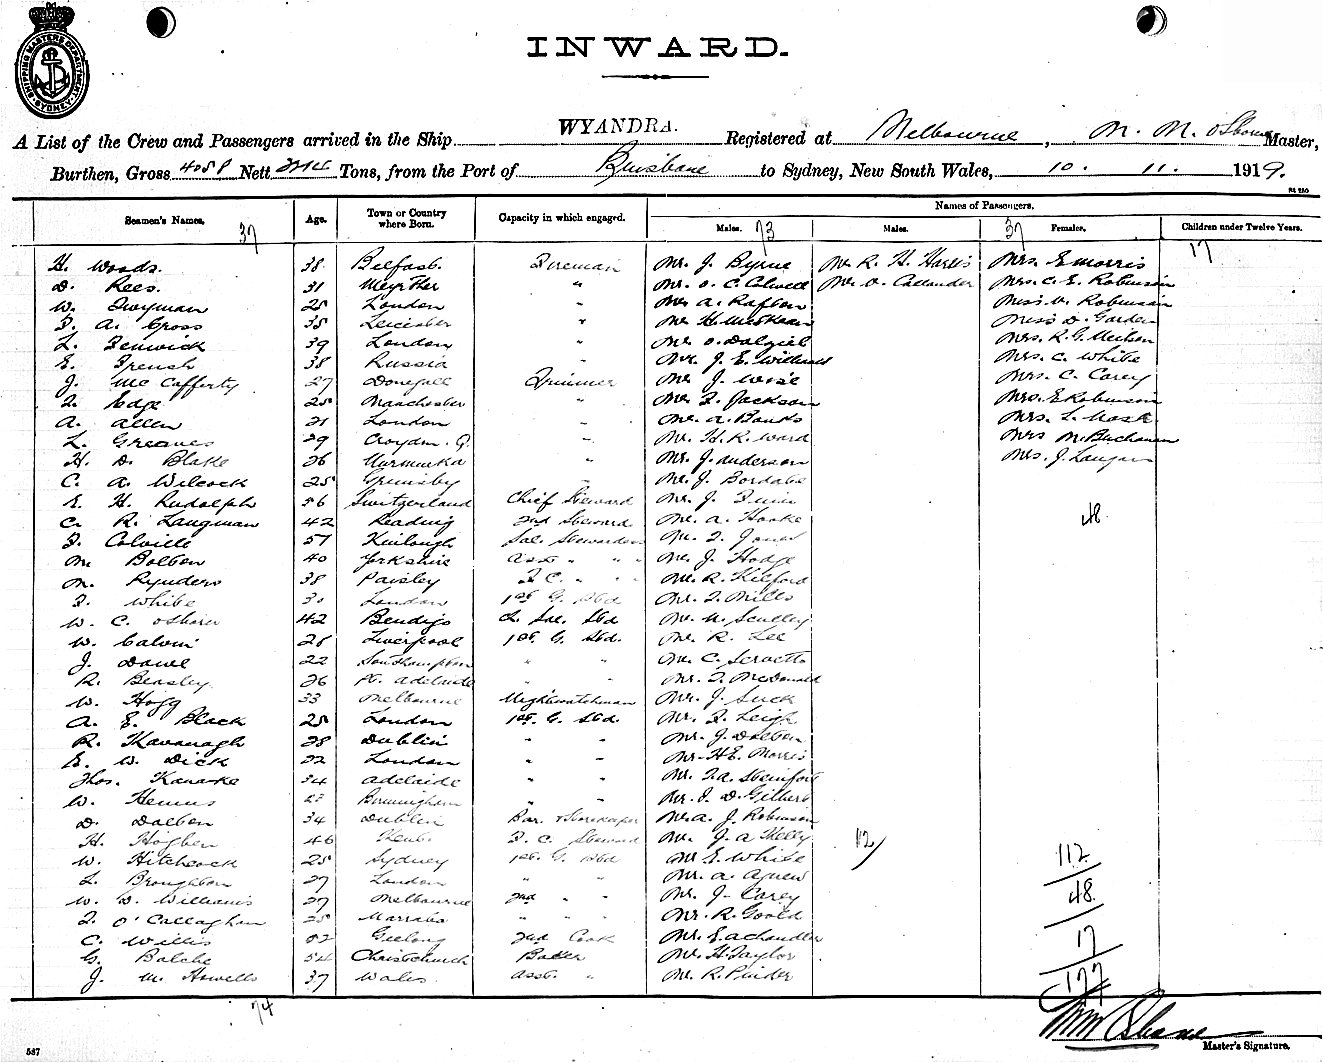 SHIPPING MASTERS DEPARTMENT SYDNEY
INWARD.
A List of the Crew and Passengers arrived in the Ship WYANDRA. Registered at Melbourne, M. M. Osborne Master,
Burthen, Gross 4058 Nett Tons, from the Port of Brisbane to Sydney, New South Wales, 10. 11. 1919.
Names of Passengers.
Seamen's Names. 37 Age. Town or Country where Born. Capacity in which engaged. Males. 73 Males. 37 Females. Children under Twelve Years.
17
H. Woods. 38. Belfast. Fireman Mr. J. Byrne Mr. R. H. Harris Mrs. E Morris
D. Rees. 31 " Mr. O. C. Mr. O. Callander Mrs. C. E. Robinson
W. Twyman 25 London " Mr. A. Rafton Miss V. Robinson
F. A. Cross 35 Leicester " Mr. H. McKean Miss D. Garden
L. Fenwick 39 London " Mr. O. Dalziel Mrs. R. G.
E. French 38 Russia Mr. J. E. Mrs. C. White
J. Mc Cafferty 27 Donegall Trimmer Mr. J. Weise Mrs. C. Carey
F. Edge 25 Manchester " Mr. F. Jackson Mrs. E Robinson
A. Allen 21 London " Mr. A. Banks Mrs. L. Mask
L. Greaves 29 Croydon. Q. " Mr. H. R. Ward Mrs M. Buchanan
H. D. Blake 26 " Mr. J. Anderson Mrs. J. Langan
C. A. Wilcock 25 Grimsby " Mr. J. Bordats
E. H. Rudolph 56 Switzerland Chief Steward Mr. J.
C. R. Langman 42 Reading 2nd Steward Mr. A. Hooke 48
F. Colville 57 Sal. Stewardess Mr. F. Jones
M. Bolton 40 Yorkshire Asst " " Mr. J. Hodge
M. Rynders 38 Paisley F. C. " " Mr. R. Kilford
F. White 30 London 1st G. Std Mr. F. Mills
W. C. 42 Bendigo 2. Sal. Std Mr. W. Sculley
W. Calvin 28 Liverpool 1st. G. Std. Mr. R. Lee
J. Dowe 22 Southampton " " Mr. C.
R. Beasley. 26 Pt. Adelaide " " Mr. F. McDonald
W. Hogg 33 Melbourne Nightwatchman Mr. J. Suck
A. E. Black 25 London 1st. G. Std. Mr. F. Leigh
R. Kavanagh 28 Dublin " " Mr. J. Dalton
E. W. Dick 22 London " " Mr. H E. Morris
Thos. Kanaske 34 Adelaide " " Mr. F. A. Steinfort
W. Hemus 23 Birmingham " " Mr. J. D. Gilbert
D. Dalton 34 Dublin Bar. Storekeeper Mr. A. J. Robinson
H. Hogben 46 Kent. F. C. Steward Mr. J. A Kelly 112/
W. Hitchcock 25 Sydney 1st. G. Std Mr E. White 112
L. Broughton 27 London " " Mr. A. Agnew
W. D. Williams 27 Melbourne 2nd " " Mr. J. Carey 48
F. O'Callaghan 25 " " " Mr. R. Goold
C. Willis 52 Geelong 2nd Cook Mr. E. A Chandler 17
G. Balche 54 Christchurch Baker Mr. H. Taylor
J. M. Howells 37 Wales. Asst. " Mr. R. Pinder 177
74
Master's Signature.
537